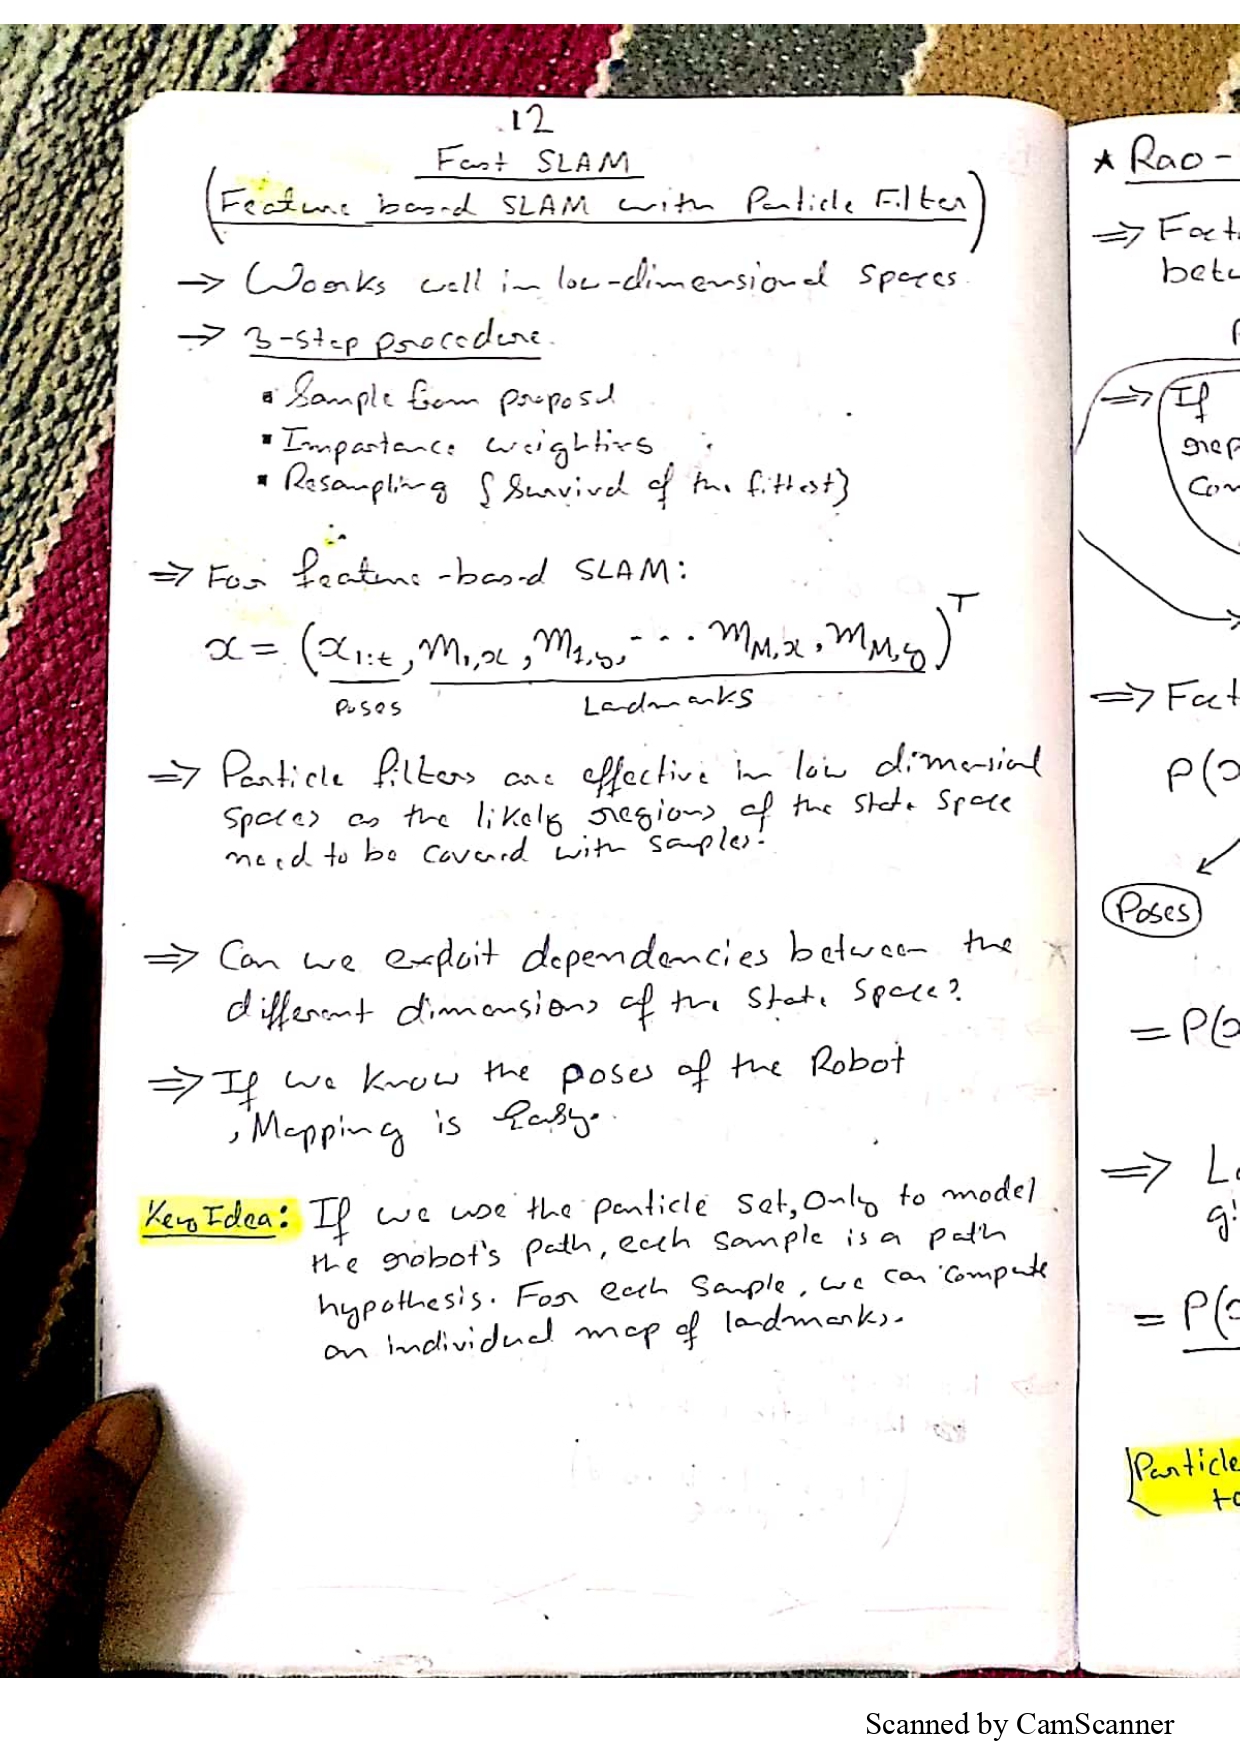 12
Fast SLAM
(Feature based SLAM with Particle Filter)
→ Works well in low-dimensional spaces.
→ 3-step procedure.
▪ Sample from proposal
▪ Importance weighting
▪ Resampling {Survival of the fittest}
⇒ For feature-based SLAM:
x = (x1:t, m1,x, m1,y, ... mM,x, mM,y)^T
Poses Landmarks
⇒ Particle filters are effective in low dimensional
spaces as the likely regions of the state space
need to be covered with samples.
⇒ Can we exploit dependencies between the
different dimensions of the state space?
⇒ If we know the poses of the Robot
, Mapping is easy.
Key Idea: If we use the particle set, only to model
the robot's path, each sample is a path
hypothesis. For each sample, we can compute
an individual map of landmarks.
★ Rao-
⇒ Fact
betw
⇒ If
rep
Con
⇒ Fact
P(x
Poses
= P(x
⇒ La
gi
= P(x
Particle
to
Scanned by CamScanner